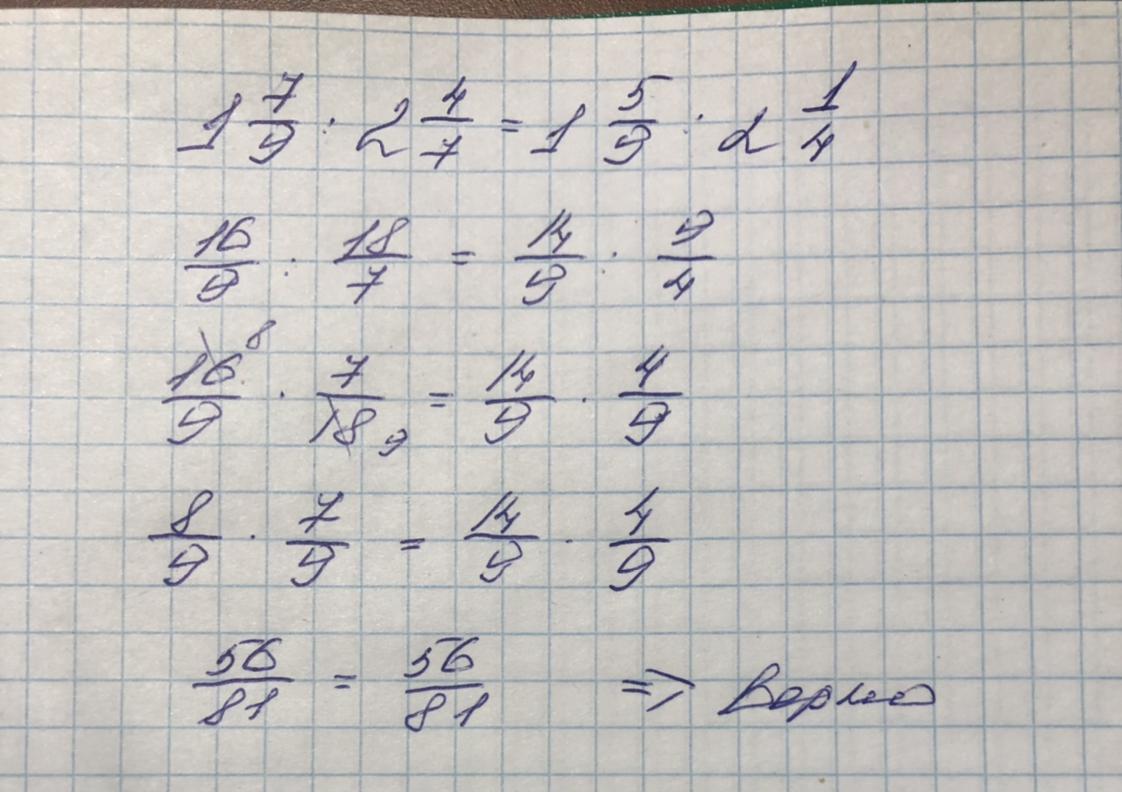 1 7/9 : 2 4/7 = 1 5/9 : 2 1/4
16/9 : 18/7 = 14/9 : 9/4
16 8/9 · 7/18 9 = 14/9 · 4/9
8/9 · 7/9 = 14/9 · 4/9
56/81 = 56/81 => Верно